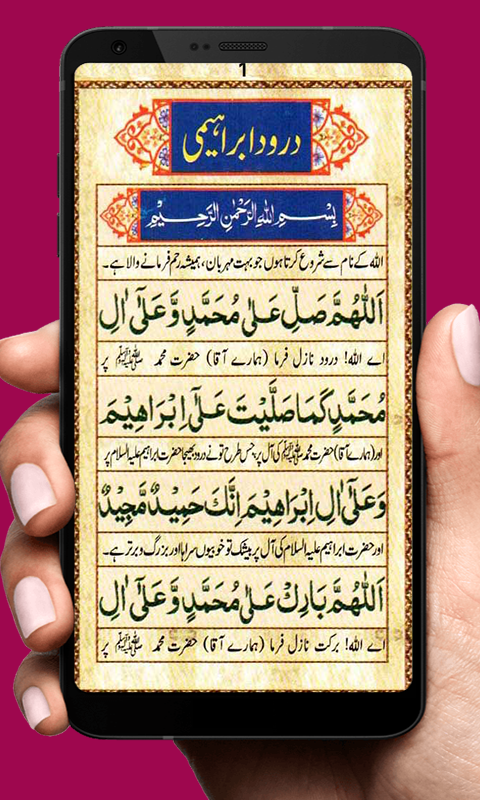 1
درود ابراہیمی
بِسْمِ اللهِ الرَّحْمٰنِ الرَّحِيْمِ
اللہ کے نام سے شروع کرتا ہوں جو بہت مہربان، ہمیشہ رحم فرمانے والا ہے۔
اَللّٰهُمَّ صَلِّ عَلٰى مُحَمَّدٍ وَّعَلٰٓى اٰلِ
اے اللہ! درود نازل فرما (ہمارے آقا) حضرت محمد ﷺ پر
مُحَمَّدٍ كَمَا صَلَّيْتَ عَلٰٓى اِبْرَاهِيْمَ
اور (ہمارے آقا) حضرت محمد ﷺ کی آل پر، جس طرح تو نے درود بھیجا حضرت ابراہیم علیہ السلام پر
وَعَلٰٓى اٰلِ اِبْرَاهِيْمَ اِنَّكَ حَمِيْدٌ مَّجِيْدٌ
اور حضرت ابراہیم علیہ السلام کی آل پر بیشک تو خوبیوں سراہا اور بزرگ و برتر ہے۔
اَللّٰهُمَّ بَارِكْ عَلٰى مُحَمَّدٍ وَّعَلٰٓى اٰلِ
اے اللہ! برکت نازل فرما (ہمارے آقا) حضرت محمد ﷺ پر